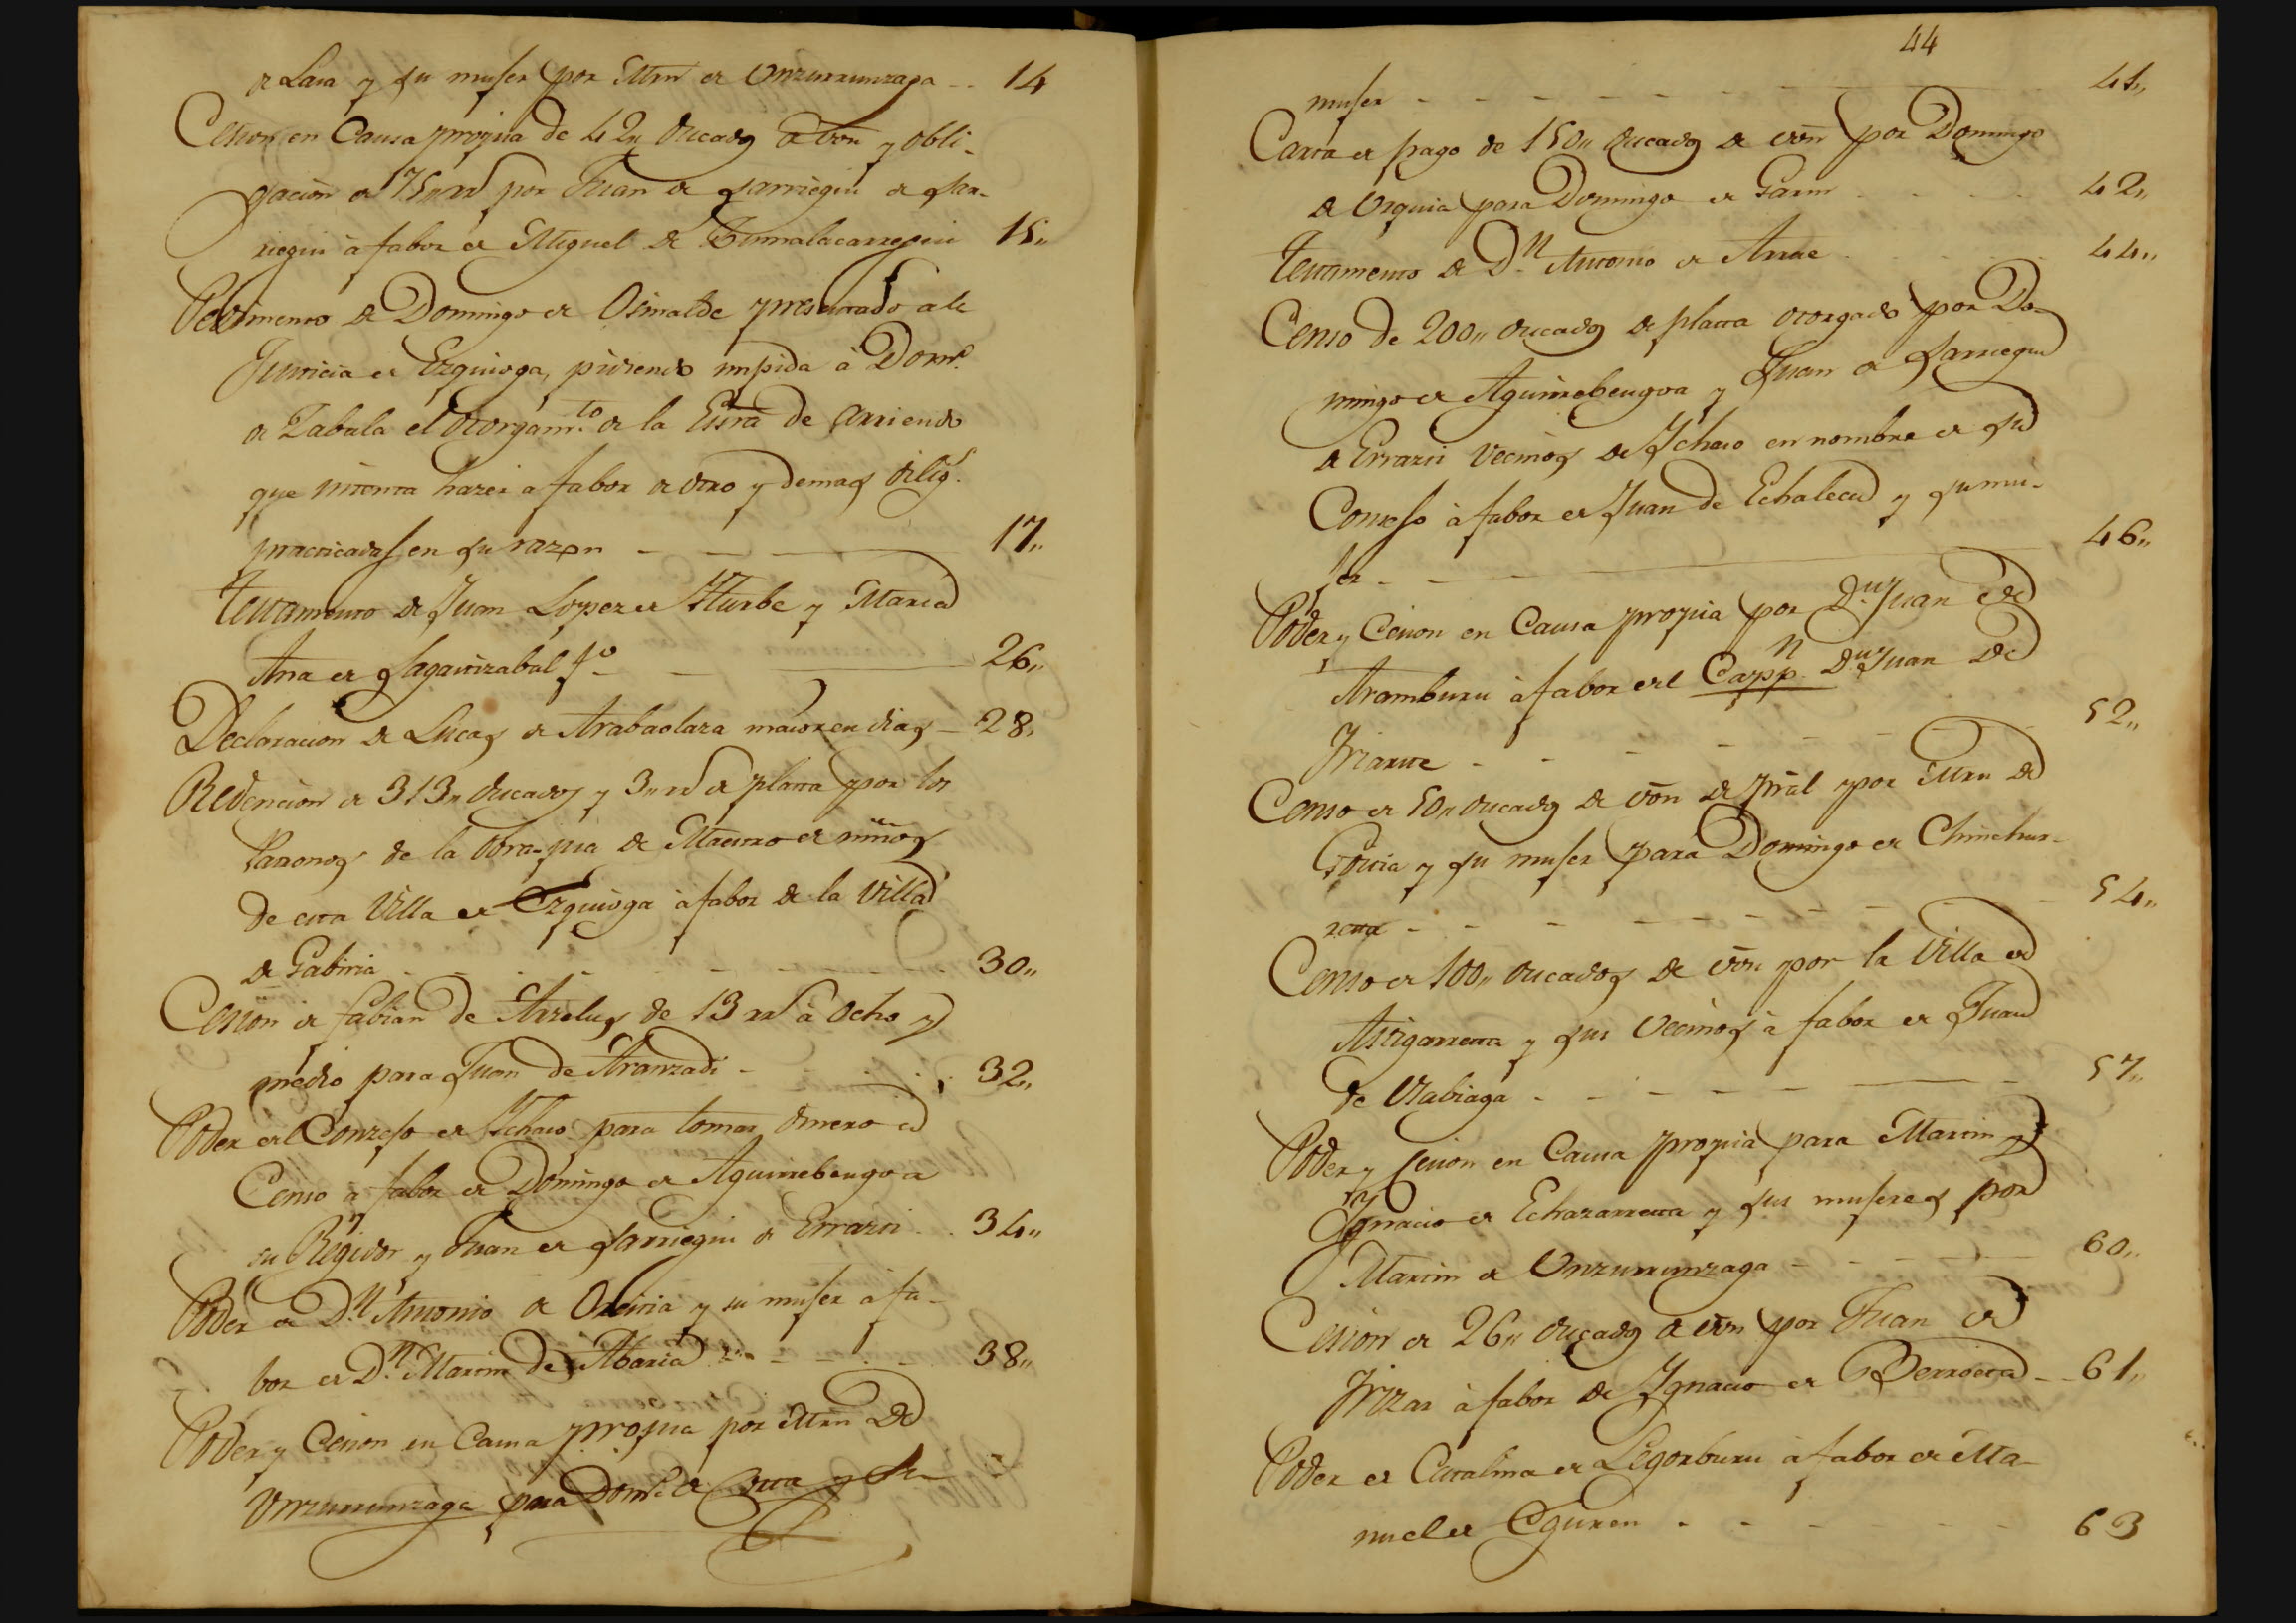 de Lasa y su muger por Mrn de Unzurrunzaga - - 14
Cesion en Causa propria de 42" ducados de von y obli-
gacion de 75" rrs por Juan de Sarriegui de Sar-
riegui à fabor de Miguel de Zumalacarregui 15"
Pedimento de Domingo de Osinalde presentado a la
Justicia de Ezquioga, pidiendo impida à Domo.
de Zabala el otorgamto. de la Essra de Arriendo
que intenta hazer a fabor de otro y demas dilixs.
practicadas en su razon - - - 17"
Testamento de Juan Lopez de Yturbe y Maria
Ana de Sagastizabal - - 26"
Declaracion de Lucas de Arabaolaza maior en dias - 28"
Redencion de 313" ducados y 3" rrs de platta por los
Patronos de la obra-pia de Maestro de niños
de esta Villa de Ezquioga à fabor de la Villa
de Gabiria - - - 30"
Cesion de fabian de Arzelus de 13 rrs à ocho y
medio para Juan de Aranzadi - 32"
Poder del Conzejo de Ychaso para tomar dinero a
Censo à fabor de Domingo de Aguirrebengoa
su Regidor y Juan de Sarriegui de Errazti - 34"
Poder de Dn. Antonio de Oreitia y su muger à fa-
bor de Dn. Martin de Abaria - - - 38"
Poder y Cesion en Causa propria por Mrn de
Unzurrunzaga para Domo. de Osta y su
44
muger - - - 41"
Carta de pago de 150" ducados de von por Domingo
de Urquia para Domingo de Garin - - 42"
Testamento de Dn. Antonio de Arrue - - 44"
Censo de 200" ducados de platta otorgado por Do-
mingo de Aguirrebengoa y Juan de Sarriegui
de Errazti vecinos de Ychaso en nombre de su
Consejo à fabor de Juan de Echalecu y su mu-
jer - - - 46"
Poder y Cesion en Causa propria por Dn. Juan de
Aramburu à fabor del Cappn. Dn. Juan de
Yriarte - - - 52"
Censo de 50" ducados de von de pral por Mrn de
Goitia y su muger para Domingo de Chinchur-
reta - - - 54"
Censo de 100" ducados de von por la Villa de
Astigarreta y sus vecinos à fabor de Juan
de Urabiaga - - - 57"
Poder y Cesion en Causa propria para Martin y
Ygnacio de Echazarreta y sus mugeres por
Martin de Unzurrunzaga - - - 60"
Cesion de 26" ducados de von por Juan de
Yrizar à fabor de Ygnacio de Berroeta - - 61"
Poder de Catalina de Legorburu à fabor de Ma-
nuel de Eguren - - - 63